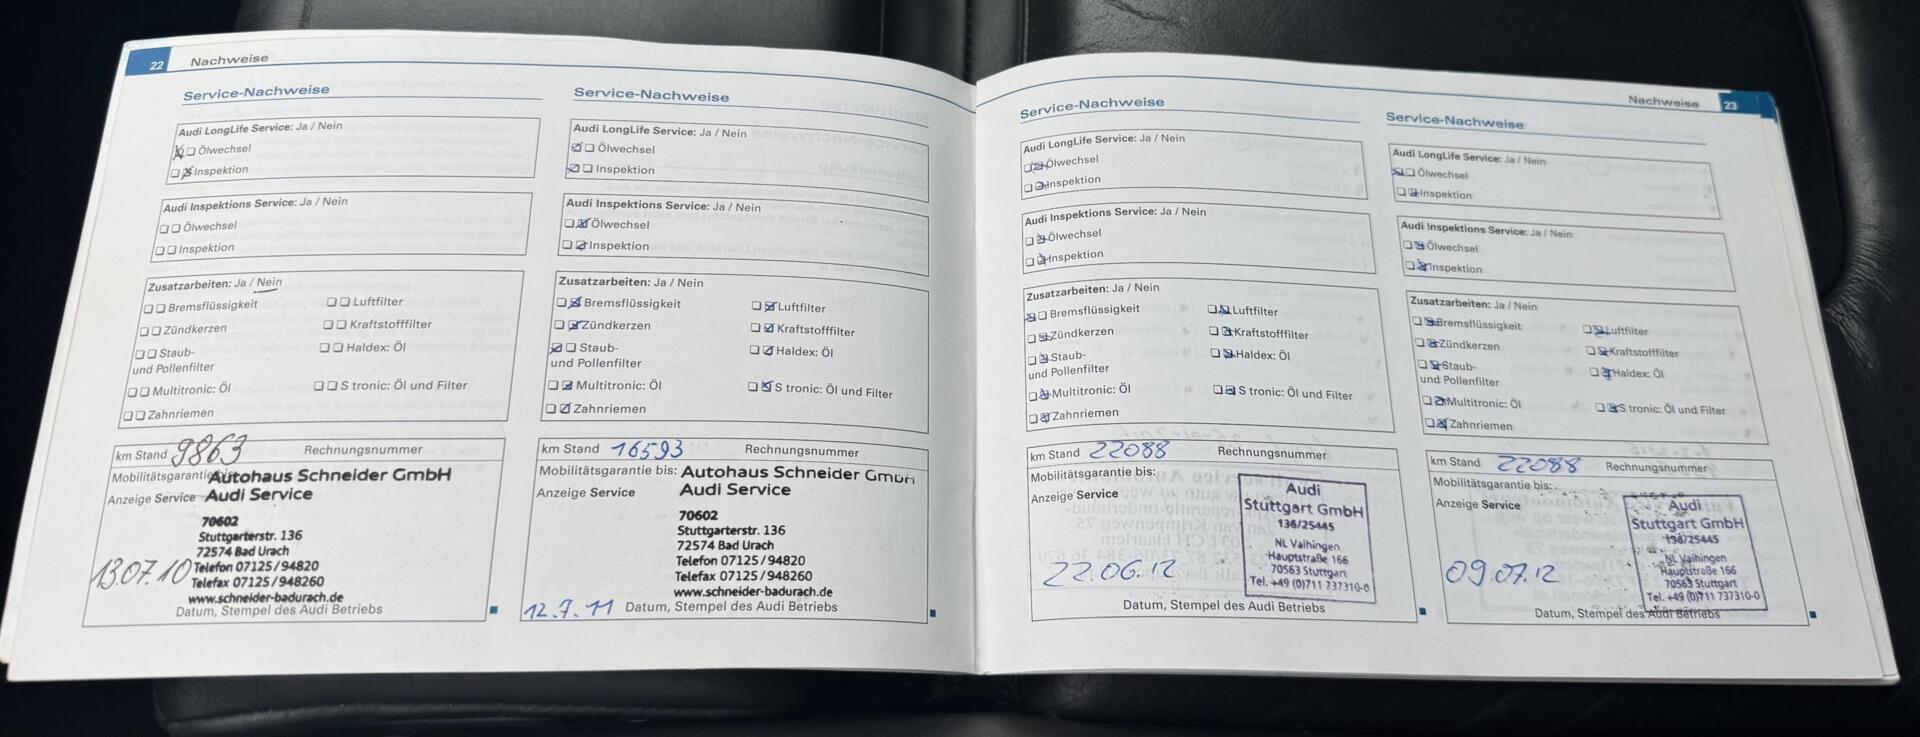 22 Nachweise
Service-Nachweise
Audi LongLife Service: Ja / Nein
Ölwechsel
Inspektion
Audi Inspektions Service: Ja / Nein
Ölwechsel
Inspektion
Zusatzarbeiten: Ja / Nein
Bremsflüssigkeit Luftfilter
Zündkerzen Kraftstofffilter
Staub- Haldex: Öl
und Pollenfilter
Multitronic: Öl S tronic: Öl und Filter
Zahnriemen
km Stand 9863 Rechnungsnummer
Mobilitätsgarantie bis:
Autohaus Schneider GmbH
Anzeige Service Audi Service
70602
Stuttgarterstr. 136
72574 Bad Urach
Telefon 07125/94820
13.07.10 Telefax 07125/948260
www.schneider-badurach.de
Datum, Stempel des Audi Betriebs
Service-Nachweise
Audi LongLife Service: Ja / Nein
Ölwechsel
Inspektion
Audi Inspektions Service: Ja / Nein
Ölwechsel
Inspektion
Zusatzarbeiten: Ja / Nein
Bremsflüssigkeit Luftfilter
Zündkerzen Kraftstofffilter
Staub- Haldex: Öl
und Pollenfilter
Multitronic: Öl S tronic: Öl und Filter
Zahnriemen
km Stand 16593 Rechnungsnummer
Mobilitätsgarantie bis: Autohaus Schneider GmbH
Anzeige Service Audi Service
70602
Stuttgarterstr. 136
72574 Bad Urach
Telefon 07125/94820
Telefax 07125/948260
www.schneider-badurach.de
12.7.11 Datum, Stempel des Audi Betriebs
Nachweise 23
Service-Nachweise
Audi LongLife Service: Ja / Nein
Ölwechsel
Inspektion
Audi Inspektions Service: Ja / Nein
Ölwechsel
Inspektion
Zusatzarbeiten: Ja / Nein
Bremsflüssigkeit Luftfilter
Zündkerzen Kraftstofffilter
Staub- Haldex: Öl
und Pollenfilter
Multitronic: Öl S tronic: Öl und Filter
Zahnriemen
km Stand 22088 Rechnungsnummer
Mobilitätsgarantie bis:
Anzeige Service
Audi
Stuttgart GmbH
136/25445
NL Vaihingen
Hauptstraße 166
70563 Stuttgart
Tel. +49 (0)711 737310-0
22.06.12
Datum, Stempel des Audi Betriebs
Service-Nachweise
Audi LongLife Service: Ja / Nein
Ölwechsel
Inspektion
Audi Inspektions Service: Ja / Nein
Ölwechsel
Inspektion
Zusatzarbeiten: Ja / Nein
Bremsflüssigkeit Luftfilter
Zündkerzen Kraftstofffilter
Staub- Haldex: Öl
und Pollenfilter
Multitronic: Öl S tronic: Öl und Filter
Zahnriemen
km Stand 22088 Rechnungsnummer
Mobilitätsgarantie bis:
Anzeige Service
Audi
Stuttgart GmbH
136/25445
NL Vaihingen
Hauptstraße 166
70563 Stuttgart
Tel. +49 (0)711 737310-0
09.07.12
Datum, Stempel des Audi Betriebs